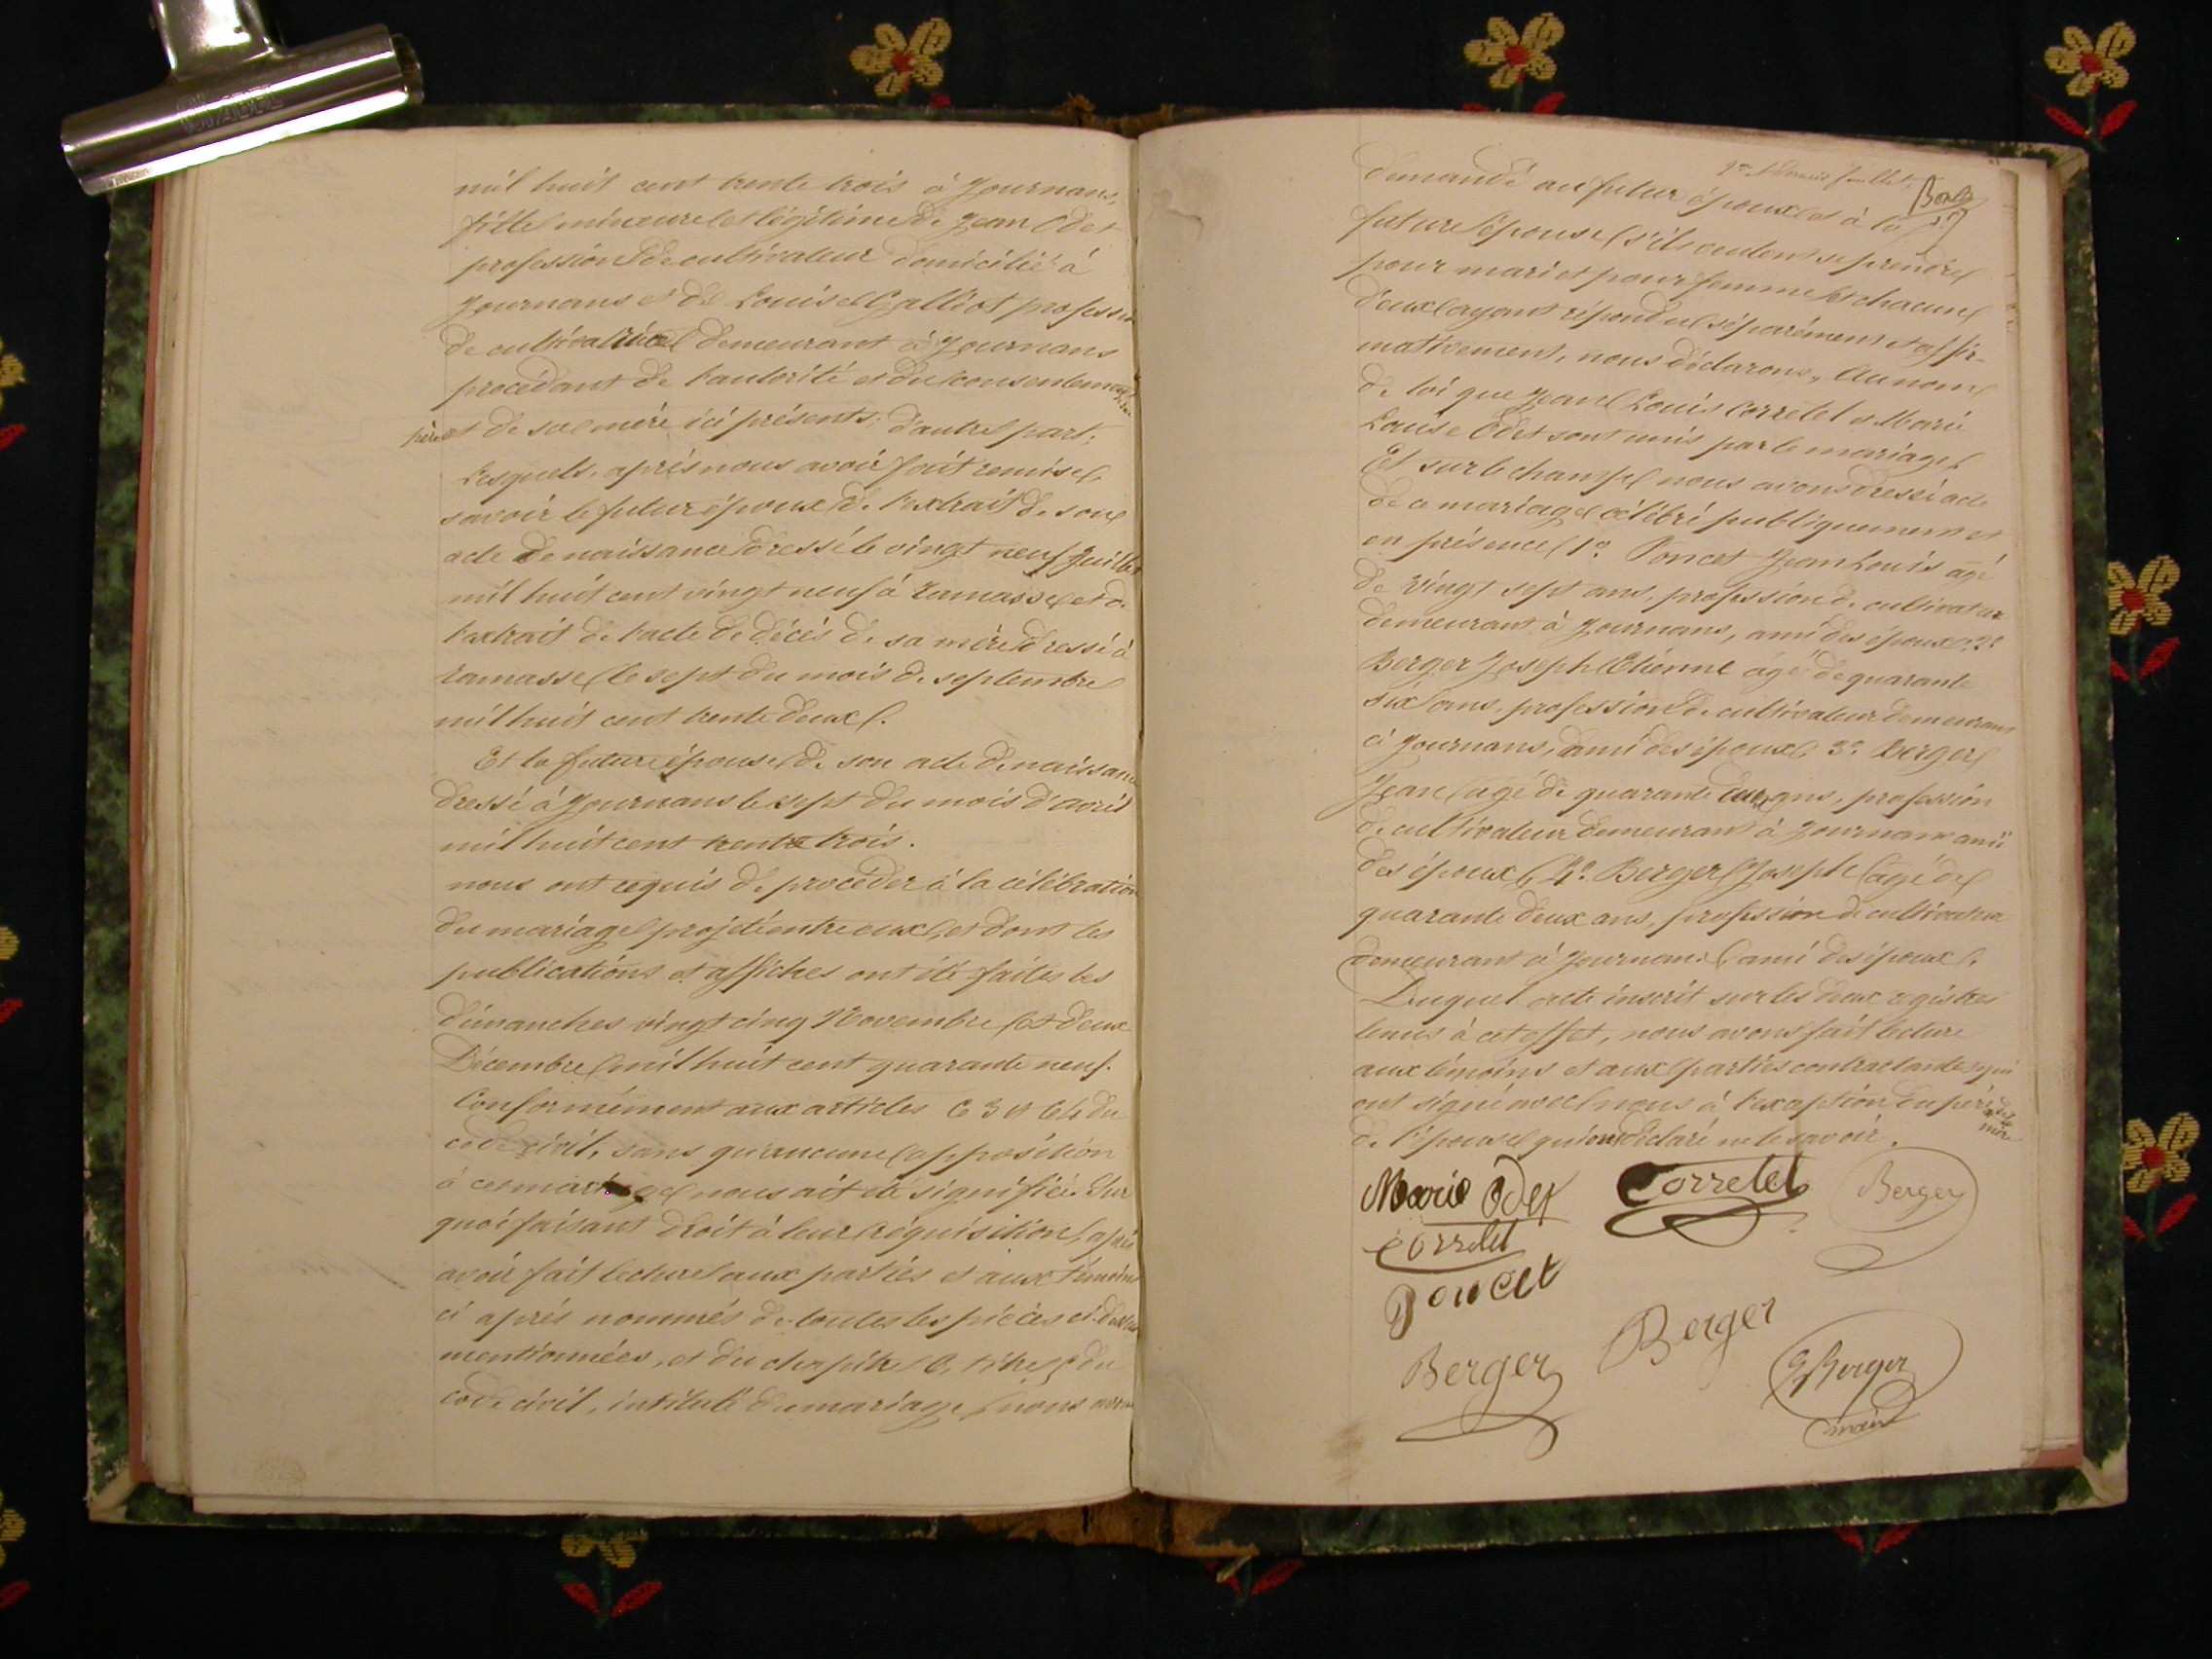 mil huit cent trente trois à Journans,
fille mineure et légitime de Jean Odet
profession de cultivateur domicilié à
Journans et de Louise Galliot profession
de cultivatrice demeurant à Journans
procédant de l'autorité et du consentement de son
père et de sa mère ici présents, d'autre part;
Lesquels, après nous avoir fait remise,
savoir le futur époux, de l'extrait de son
acte de naissance dressé le vingt neuf Juillet
mil huit cent vingt neuf à Ramasse et de
l'extrait de l'acte de décès de sa mère dressé à
Ramasse le sept du mois de septembre
mil huit cent trente deux.
Et la future épouse, de son acte de naissance
dressé à Journans le sept du mois d'avril
mil huit cent trente trois.
nous ont requis de procéder à la célébration
du mariage projeté entre eux, et dont les
publications et affiches ont été faites les
dimanches vingt cinq Novembre et deux
Décembre mil huit cent quarante neuf.
Conformément aux articles 63 et 64 du
code civil, sans qu'aucune opposition
à ce mariage nous ait été signifiée. Sur
quoi faisant droit à leur réquisition, après
avoir fait lecture aux parties et aux témoins
ci après nommés de toutes les pièces ci-dessus
mentionnées, et du chapitre 6, titre 5 du
code civil, intitulé du mariage, nous avons
et dernier feuillet,
demandé au futur époux et à la
future épouse s'ils veulent se prendre
pour mari et pour femme et chacun
d'eux ayant répondu séparément et affir-
mativement, nous déclarons, au nom
de loi que Jean Louis Corretel et Marie
Louise Odet sont unis par le mariage,
Et sur le champ nous avons dressé acte
de ce mariage célébré publiquement et
en présence 1º Poncet Jean Louis agé
de vingt sept ans, profession de cultivateur
demeurant à Journans, ami des époux, 2º
Berger Joseph Etienne agé de quarante
six ans, profession de cultivateur demeurant
à Journans, ami des époux, 3º Berger
Jean agé de quarante deux ans, profession
de cultivateur demeurant à Journans ami
des époux, 4º Berger Joseph agé de
quarante deux ans, profession de cultivateur
demeurant à Journans, ami des époux.
Duquel acte inscrit sur les deux registres
tenus à cet effet, nous avons fait lecture
aux témoins et aux parties contractantes qui
ont signé avec nous à l'exception du père et de la mère
de l'épouse qui ont déclaré ne le savoir.
Marie Odet Corretel Berger
Corretel
Poncet
Berger Berger
Berger
maire